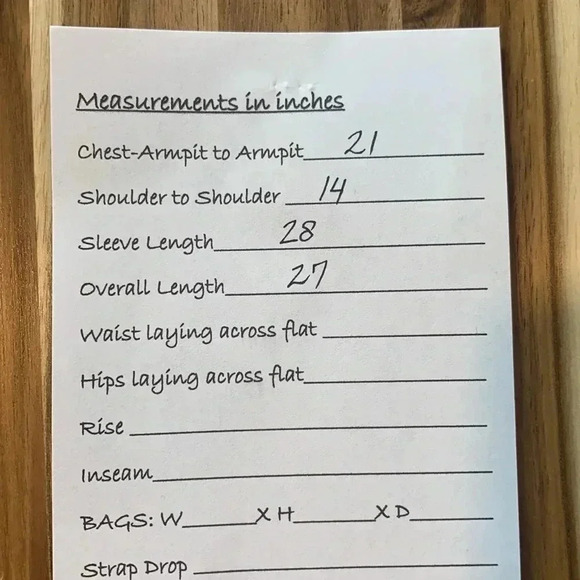 Measurements in inches
Chest-Armpit to Armpit 21
Shoulder to Shoulder 14
Sleeve Length 28
Overall Length 27
Waist laying across flat
Hips laying across flat
Rise
Inseam
BAGS: W______X H______X D______
Strap Drop